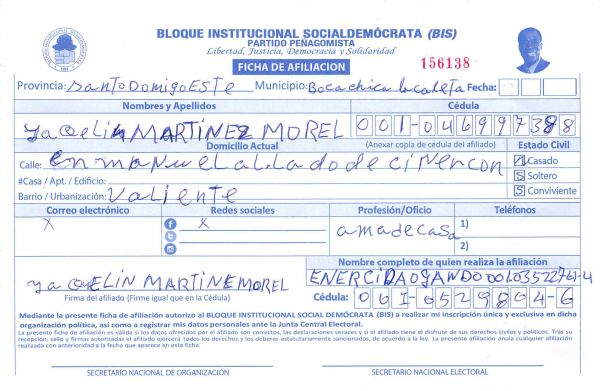 BLOQUE INSTITUCIONAL SOCIALDEMÓCRATA (BIS)
PARTIDO PEÑAGOMISTA
Libertad, Justicia, Democracia y Solidaridad
FICHA DE AFILIACION
156138
Provincia: santo Domigo ESTE Municipio: Boca chica la caleta Fecha:
Nombres y Apellidos Cédula
yaquelin MARTINEZ MOREL 001-0469973-8
Domicilio Actual (Anexar copia de cédula del afiliado) Estado Civil
Calle: En manuel al lado de cinercon Casado
#Casa / Apt. / Edificio: S Soltero
Barrio / Urbanización: Valiente S Conviviente
Correo electrónico Redes sociales Profesión/Oficio Teléfonos
X X amadecasa 1)
2)
Nombre completo de quien realiza la afiliación
yaqueLIN MARTINEMOREL ENERCIDA OGANDO
Firma del afiliado (Firme igual que en la Cédula) Cédula: 001-0529804-6
Mediante la presente ficha de afiliación autorizo al BLOQUE INSTITUCIONAL SOCIAL DEMÓCRATA (BIS) a realizar mi inscripción única y exclusiva en dicha
organización política, así como a registrar mis datos personales ante la Junta Central Electoral.
La presente ficha de afiliación es válida si los datos ofrecidos por el afiliado son correctos, las declaraciones veraces y si el afiliado tiene el disfrute de sus derechos civiles y políticos. Tras su
recepción, sello y firmas autorizadas el afiliado ejercerá todos los derechos y los deberes estatutariamente sancionados, de acuerdo a la ley. La presente afiliación anula cualquier afiliación
realizada con anterioridad a la fecha que aparece en esta ficha.
SECRETARIO NACIONAL DE ORGANIZACIÓN SECRETARIO NACIONAL ELECTORAL